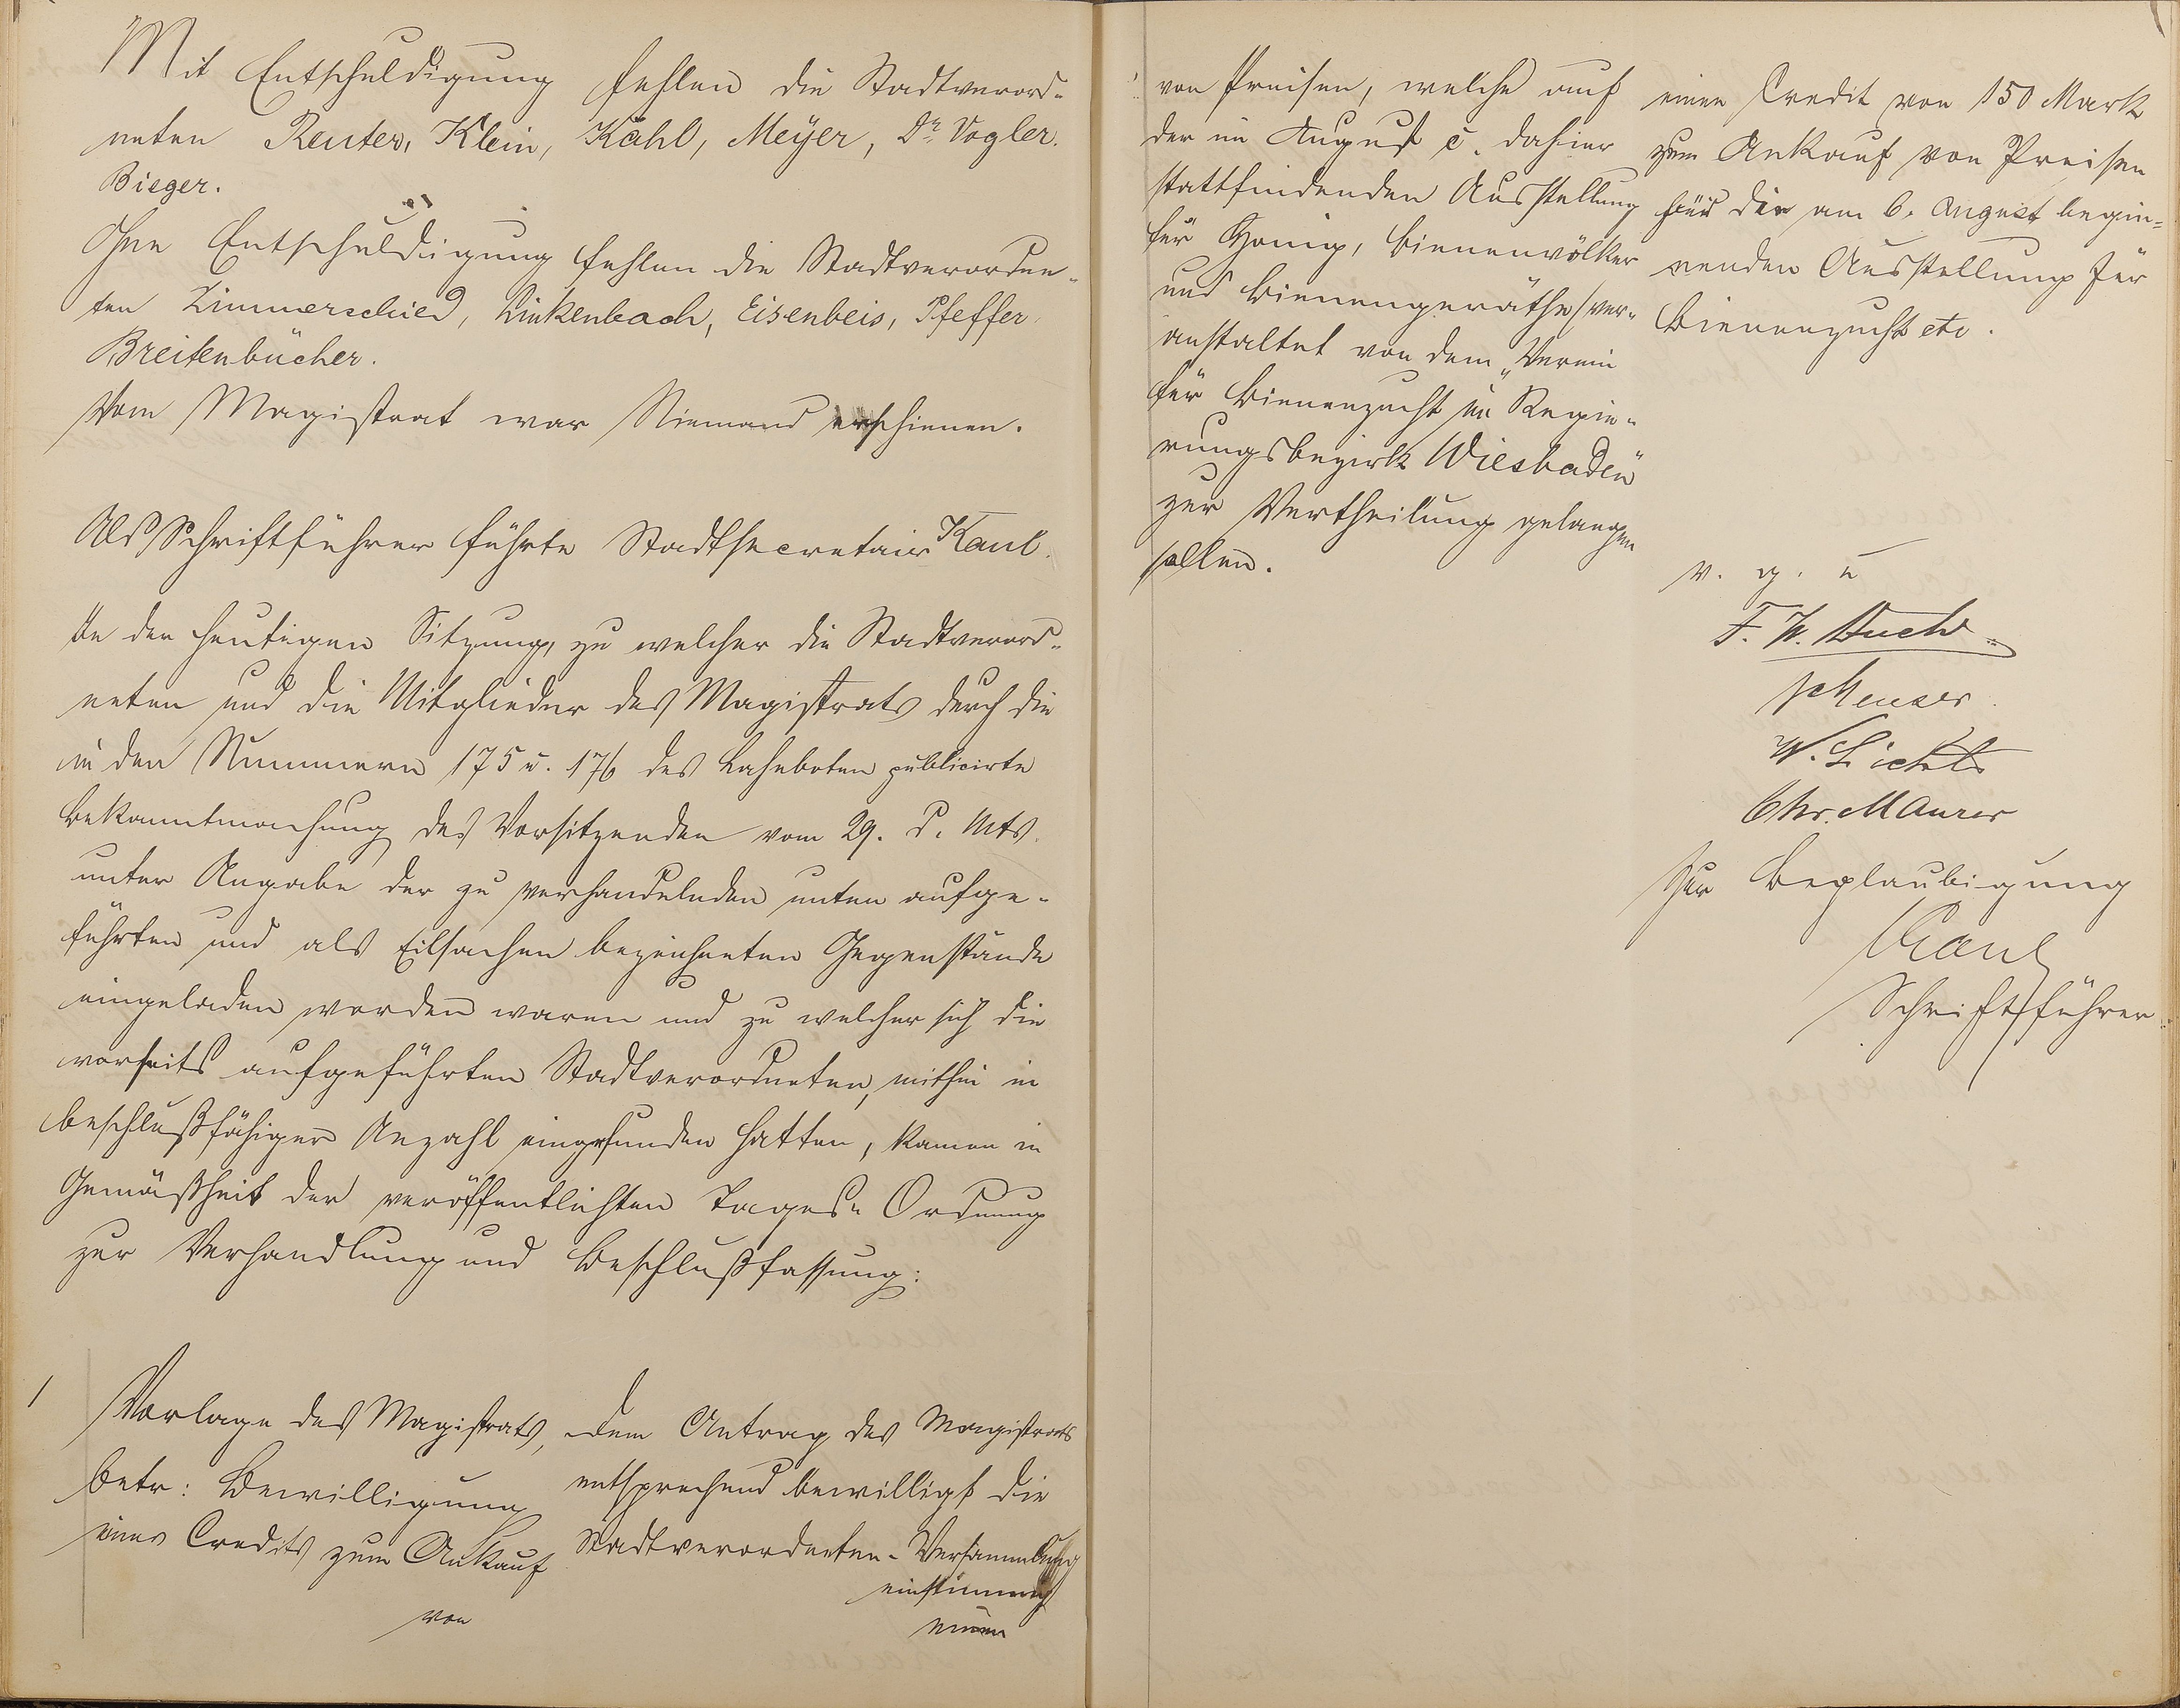 Mit Entschuldigung fehlen die Stadtverord-
neten Reuter, Klein, Kahl, Meyer, Dr. Vogler.
Bieger.
Ohne Entschuldigung fehlen die Stadtverordne-
ten Zimmerschied, Linkenbach, Eisenbeis, Pfeffer,
Breitenbücher.
Vom Magistrat war Niemand erschienen.
Als Schriftführer führte Stadtsecretair Kaul.
In der heutigen Sitzung, zu welcher die Stadtverord-
neten und die Mitglieder des Magistrats durch die
in den Nummern 175 u. 176 des Lahnboten publicirte
Bekanntmachung des Vorsitzenden vom 29. d. Mts.
unter Angabe der zu verhandelnden unten aufge-
führten und als Eilsachen bezeichneten Gegenstände
eingeladen worden waren und zu welcher sich die
vorseits aufgeführten Stadtverordneten, mithin in
beschlußfähiger Anzahl eingefunden hatten, kamen in
Gemäßheit der veröffentlichten Tages-Ordnung
zur Verhandlung und Beschlußfassung:
1
Vorlage des Magistrats,
betr: Bewilligung
eines Credits zum Ankauf
von
Dem Antrag des Magistrats
entsprechend bewilligt die
Stadtverordneten-Versammlung
einstimmig
einen
von Preisen, welche auf
der im August c. dahier
stattfindenden Ausstellung
für Honig, Bienenvölker
und Bienengeräthe/ver-
anstaltet von dem „Verein
für Bienenzucht im Regie-
rungsbezirk Wiesbaden"
zur Vertheilung gelangen
sollen.
einen Credit von 150 Mark
zum Ankauf von Preisen
für die am 6. August begin-
nenden Ausstellung für
Bienenzucht etc.
v. g. u
F. W.
W.
Chr. Maurer
Zur Beglaubigung
Kaul
Schriftführer.